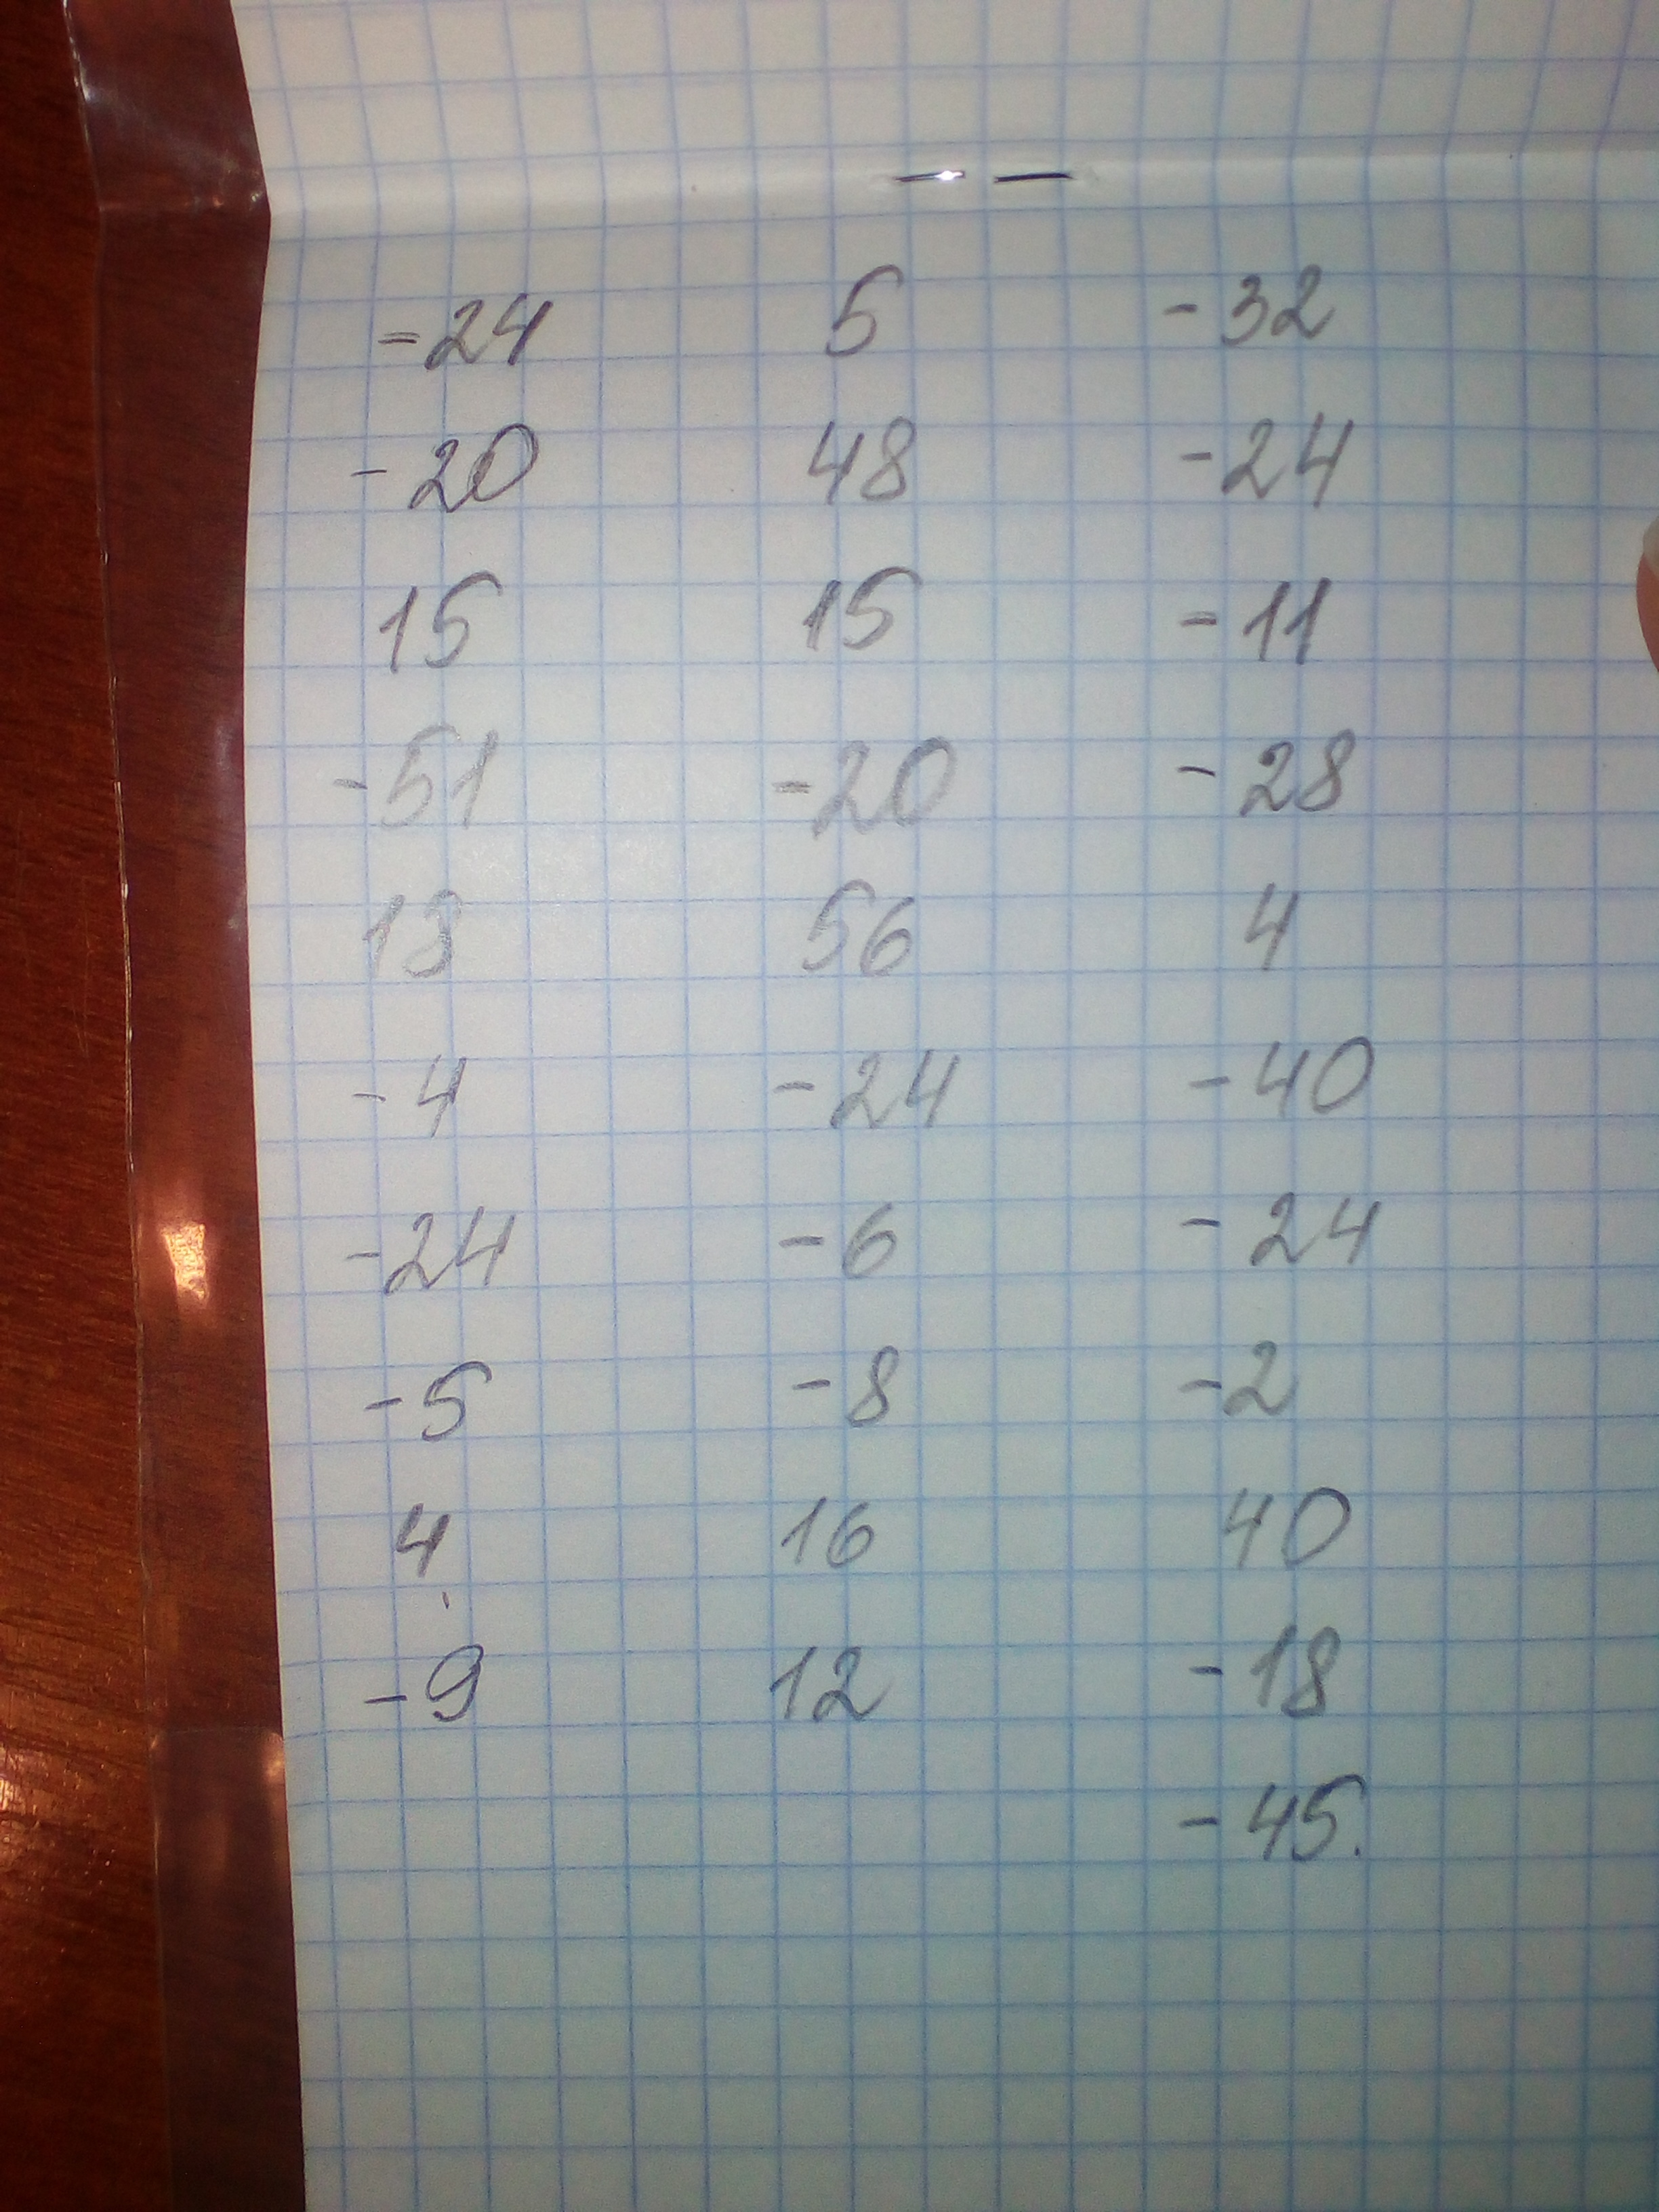 -24 5 -32
-20 48 -24
15 15 -11
-51 -20 -28
18 56 4
-4 -24 -40
-24 -6 -24
-5 -8 -2
4 16 40
-9 12 -18
-45.